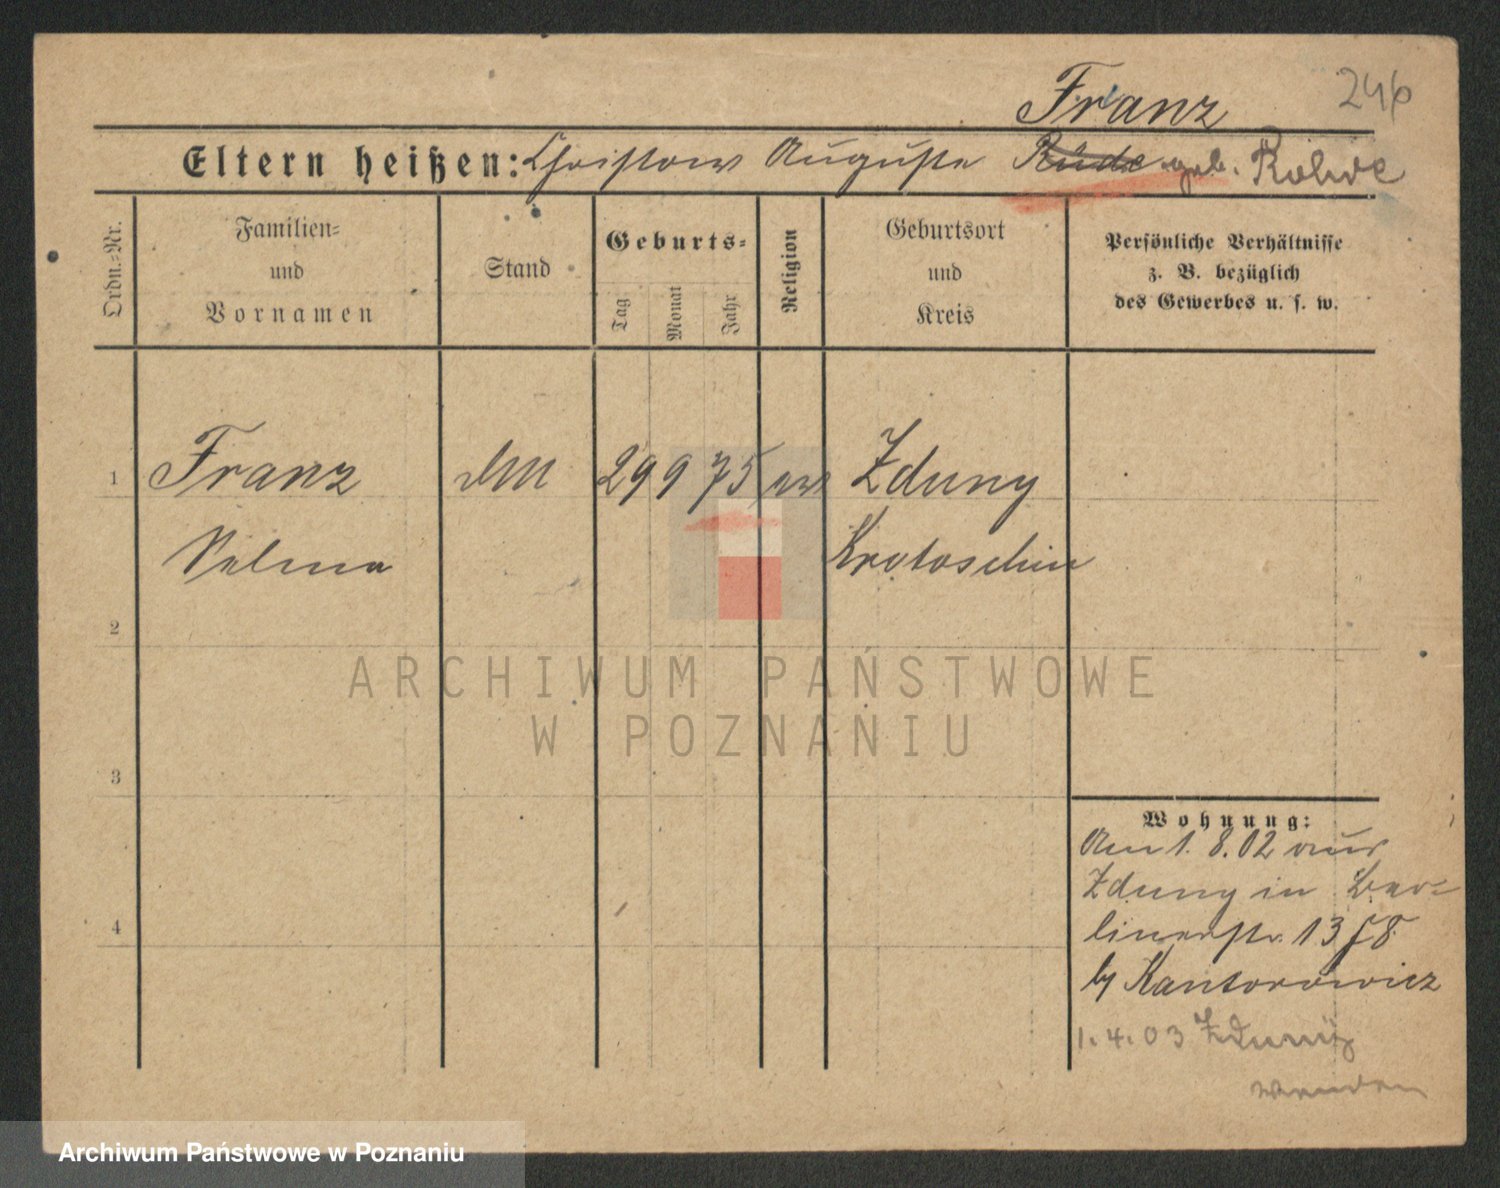 246
Franz
Eltern heißen: Christow Auguste Rüde geb. Rohde
Ordn.-Nr.
Familien-
und
Vornamen
Stand
Geburts-
Tag
Monat
Jahr
Religion
Geburtsort
und
Kreis
Persönliche Verhältnisse
z. B. bezüglich
des Gewerbes u. s. w.
1 Franz 29 9 75 ev Zduny
Selma Krotoschin
2
3
4
ARCHIWUM PAŃSTWOWE
W POZNANIU
Wohnung:
Am 1. 8. 02 aus
Zduny in Ber-
linerstr. 13
by Kantorowicz
1. 4. 03 Zduny
wenden
Archiwum Państwowe w Poznaniu